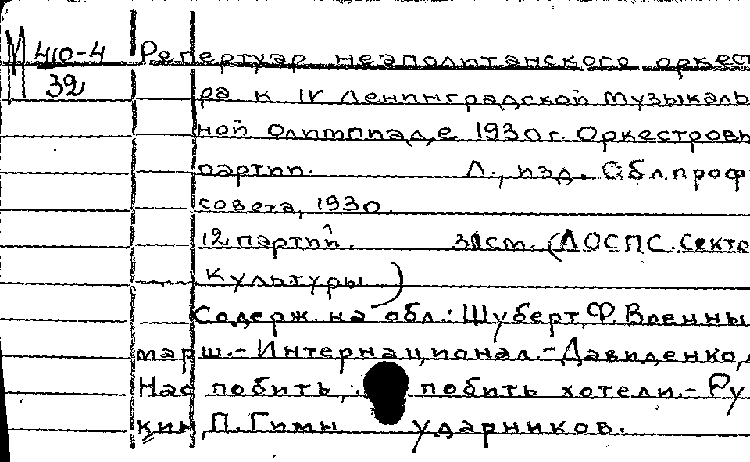 М 410-4
39
Репертуар неаполитанского оркест
ра к IV Ленинградской Музыкаль
ной Олимпиаде 1930 г. Оркестровы
партии. Л., изд. Облпроф
совета, 1930.
12 партий. 31 ст. (ЛОСПС. Секто
Культуры)
Содерж на обл.: Шуберт, Ф. Военны
марш. - Интернационал. - Давиденко,
Нас побить, побить хотели. - Ру
кин, П. Гимн ударников.